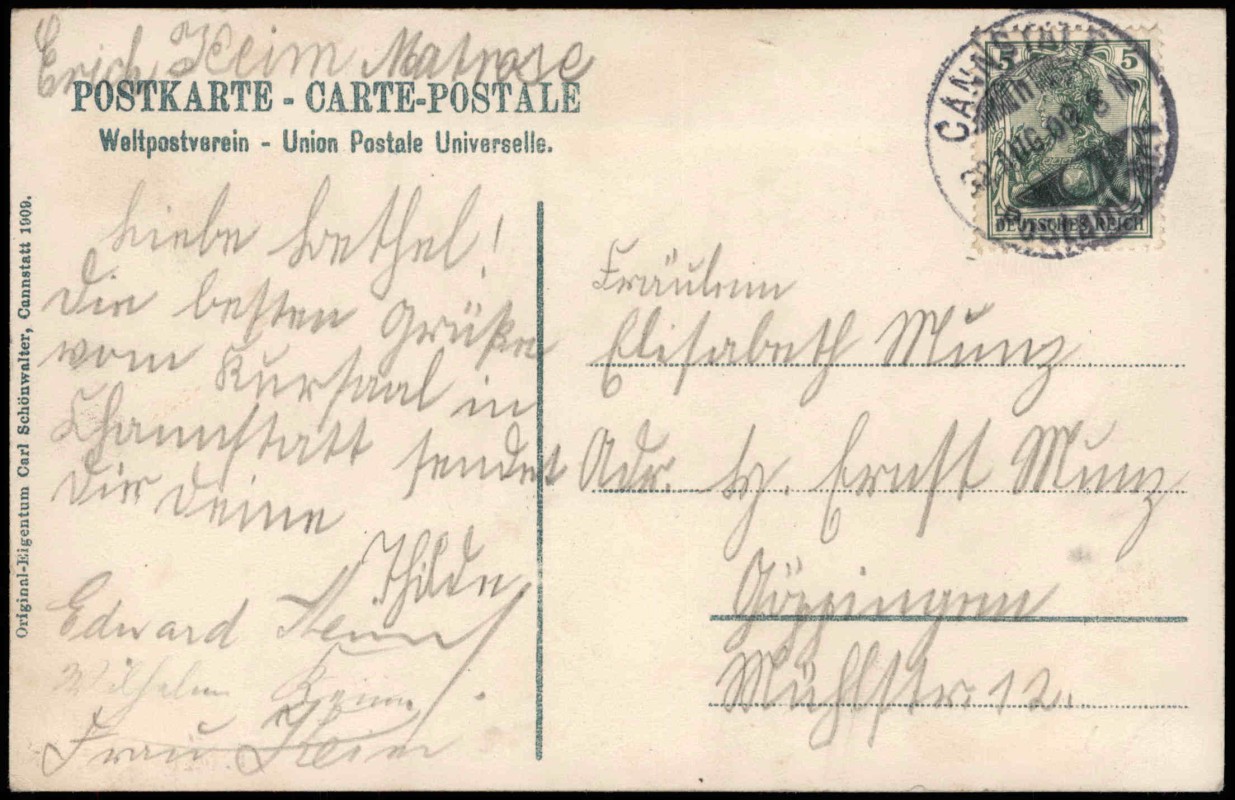 Erich Keim Matrose
POSTKARTE - CARTE-POSTALE
Weltpostverein - Union Postale Universelle.
Liebe Bethel!
Die besten Grüße
vom Kursaal in
Channstatt sendet
Dir Deine
Thilde.
Edward Keim
Wilhelm Keim
Frau Keim
Original-Eigentum Carl Schönwalter, Cannstatt 1909.
CANNSTATT
5 5
DEUTSCHES REICH
Fräulein
Elisabeth Munz
Adr. H. Ernst Munz
Göppingen
Mühlstr. 12.